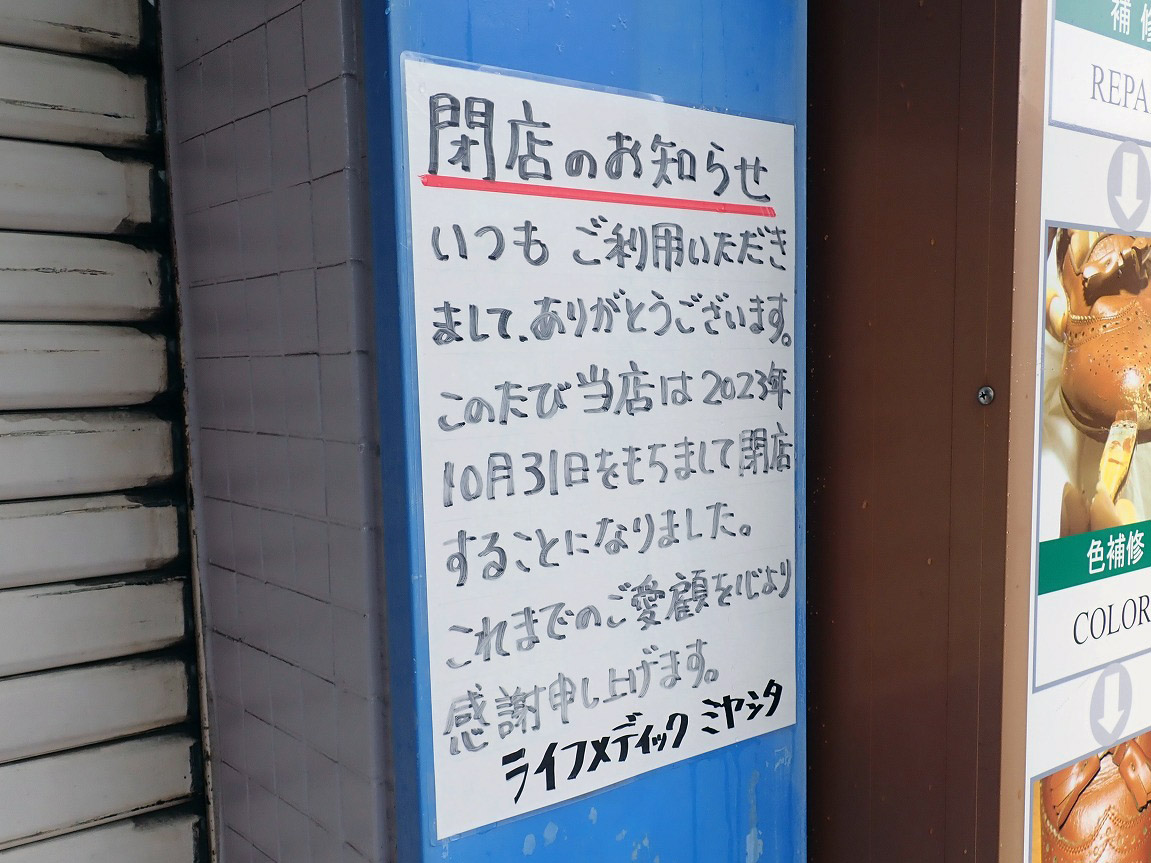 閉店のお知らせ
いつも ご利用いただき
まして、ありがとうございます。
このたび当店は2023年
10月31日をもちまして閉店
することになりました。
これまでのご愛顧を心より
感謝申し上げます。
ライフメディック ミヤシタ
補修
REPA
色補修
COLOR